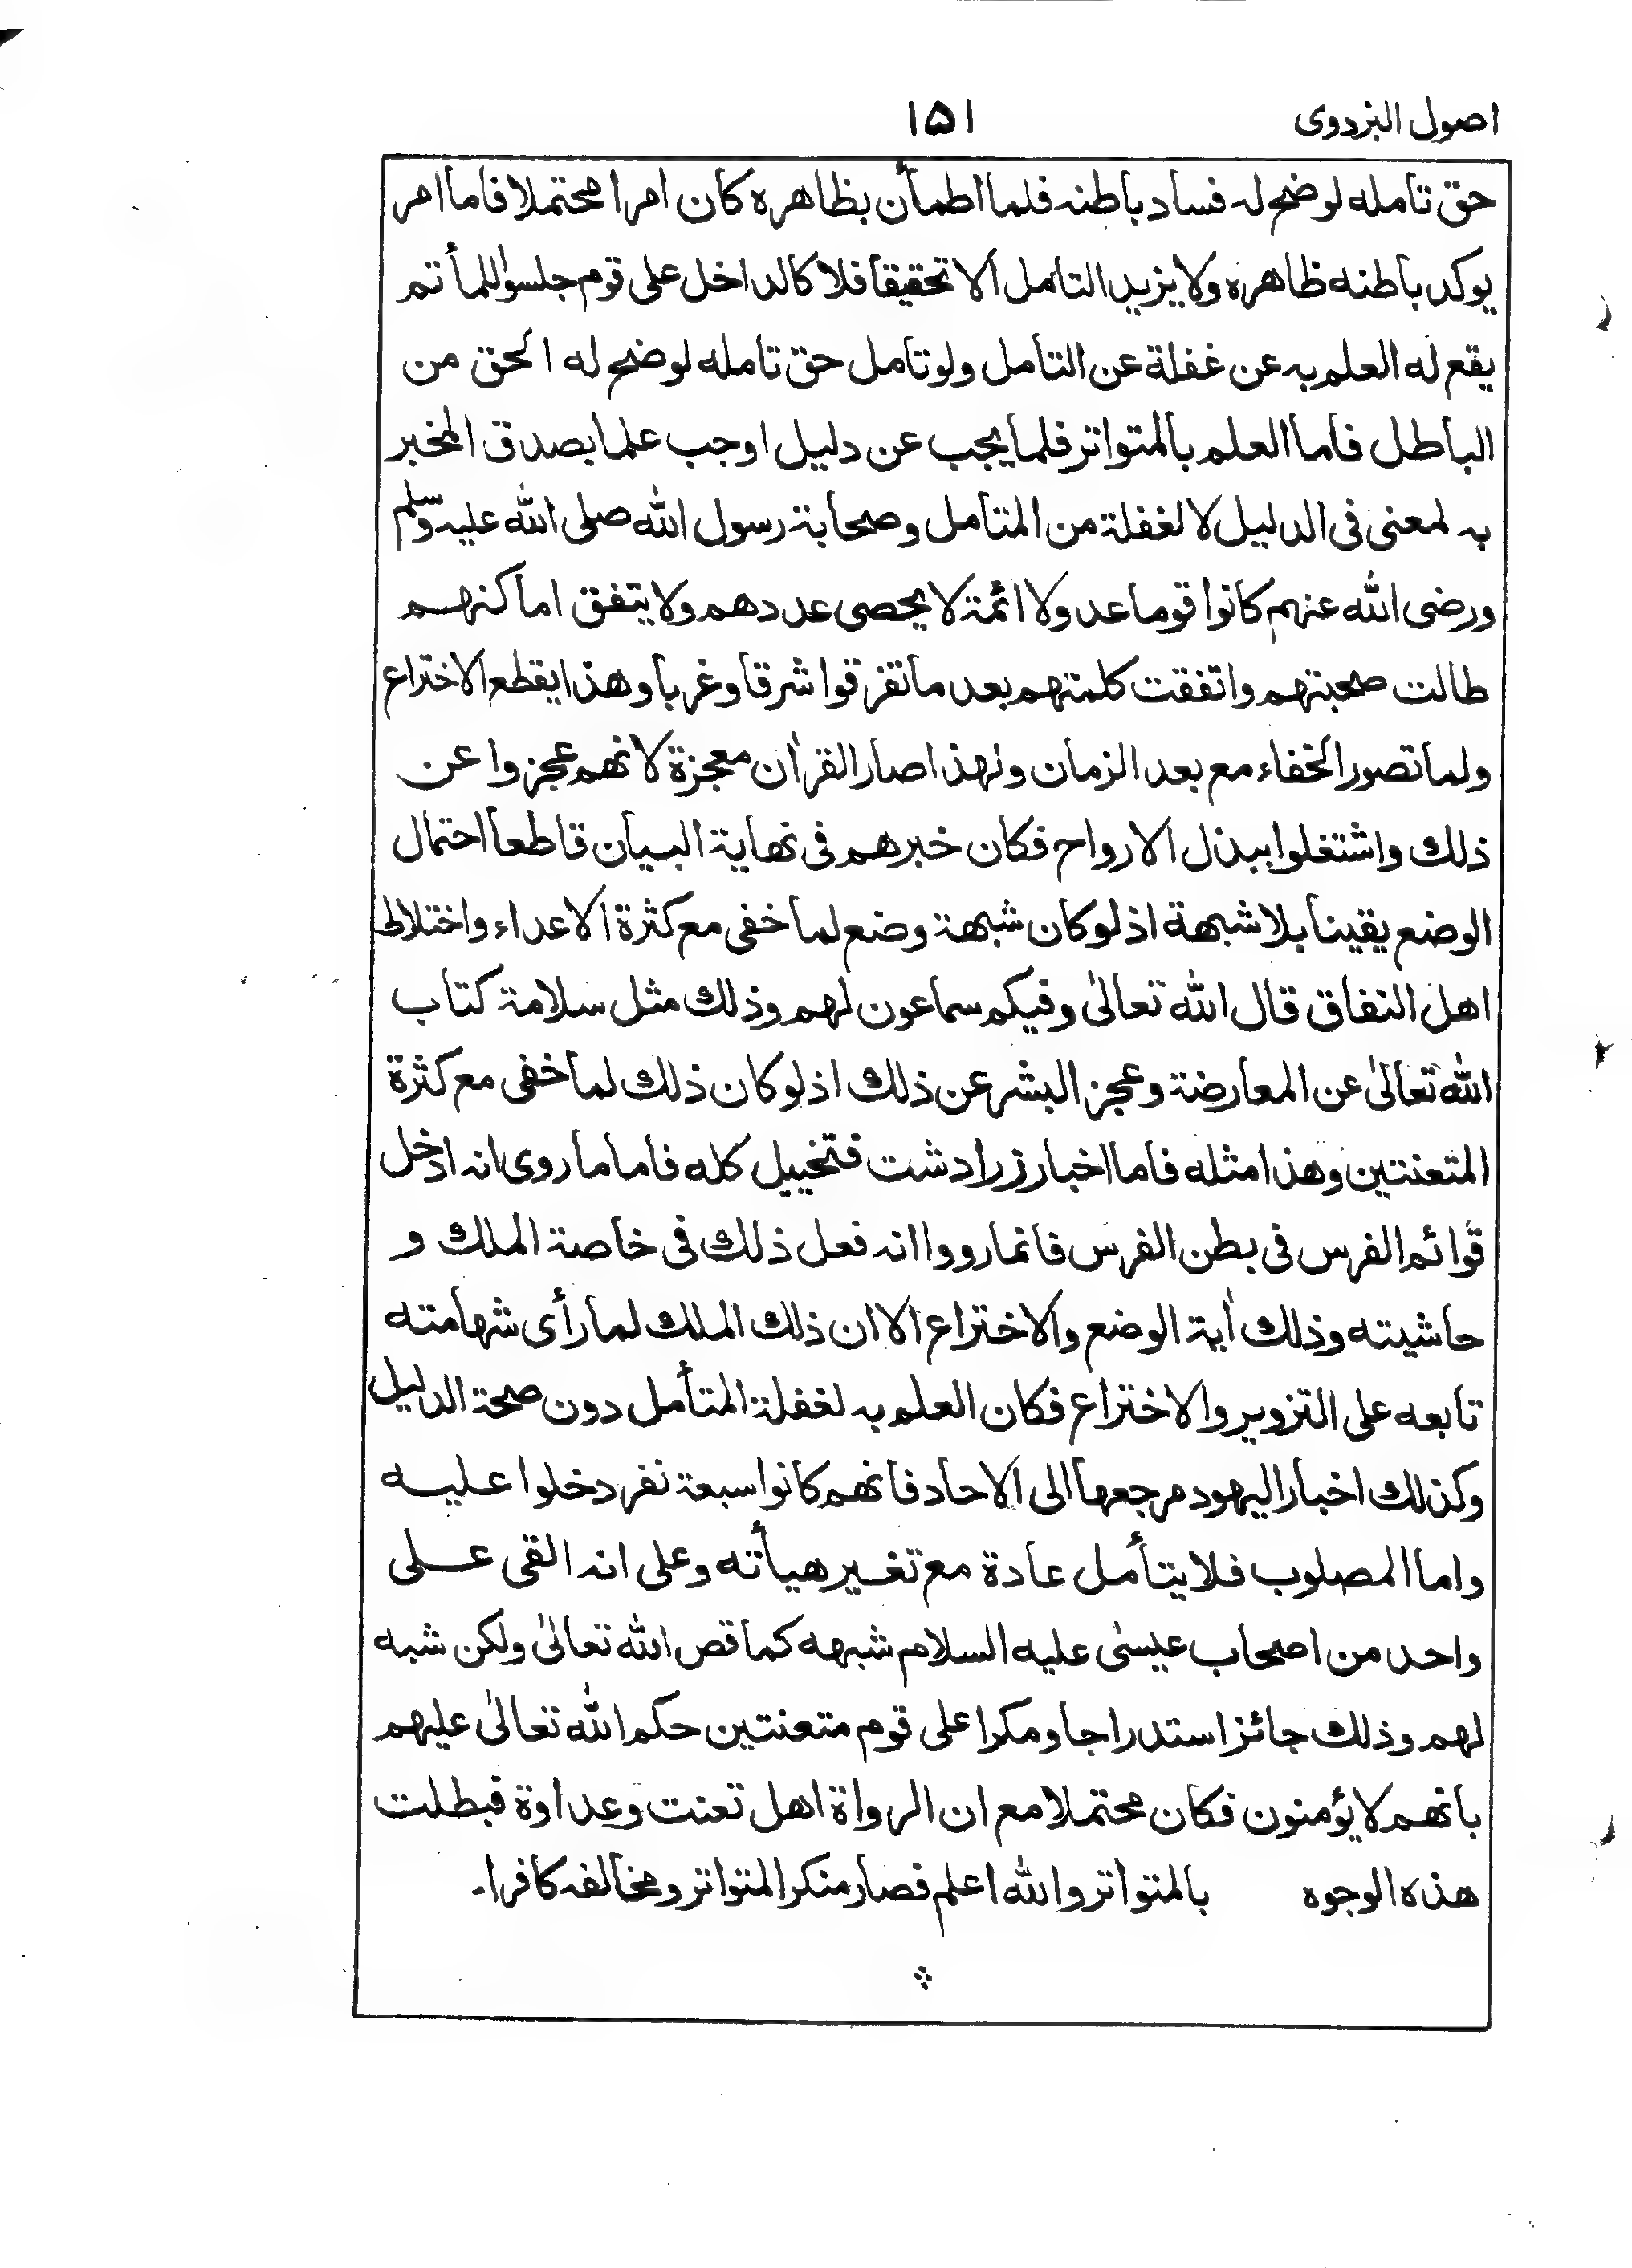 اصول البزدوی
۱۵۱
حق تامله لوضح له فساد باطنه فلما اطمأن بظاهره كان امرا محتملا فاما امر
يوكد باطنه ظاهره ولا يزيد التامل الا تحقيقا فلا كالداخل على قوم جلسوا للمأتم
يقع له العلم به عن غفلة عن التامل ولو تامل حق تامله لوضح له الحق من
الباطل فاما العلم بالمتواتر فلما يجب عن دليل اوجب علما بصدق المخبر
به لمعنى فى الدليل لا لغفلة من المتامل وصحابة رسول الله صلى الله عليه وسلم
ورضى الله عنهم كانوا قوما عدولا ائمة لا يحصى عددهم ولا يتفق اماكنهم
طالت صحبتهم واتفقت كلمتهم بعد ما تفرقوا شرقا وغربا وهذا يقطع الاختراع
ولما تصور الخفاء مع بعد الزمان ولهذا صار القرأن معجزة لانهم عجزوا عن
ذلك واشتغلوا ببذل الارواح فكان خبرهم فى نهاية البيان قاطعا احتمال
الوضع يقينا بلا شبهة اذ لو كان شبهة وضع لما خفى مع كثرة الاعداء واختلاط
اهل النفاق قال الله تعالىٰ وفيكم سماعون لهم وذلك مثل سلامة كتاب
الله تعالىٰ عن المعارضة وعجز البشر عن ذلك اذ لو كان ذلك لما خفى مع كثرة
المتعنتين وهذا مثله فاما اخبار زرادشت فتخييل كله فاما ما روى انه ادخل
قوائم الفرس فى بطن الفرس فانما رووا انه فعل ذلك فى خاصة الملك و
حاشيته وذلك أية الوضع والاختراع الا ان ذلك الملك لما رأى شهامته
تابعه على التزوير والاختراع فكان العلم به لغفلة المتأمل دون صحة الدليل
وكذلك اخبار اليهود مرجعها الى الاحاد فانهم كانوا سبعة نفر دخلوا عليه
واما المصلوب فلا يتأمل عادة مع تغير هيأته وعلى انه القى على
واحد من اصحاب عيسىٰ عليه السلام شبهه كما قص الله تعالىٰ ولكن شبه
لهم وذلك جائز استدراجا ومكرا على قوم متعنتين حكم الله تعالىٰ عليهم
بانهم لا يؤمنون فكان محتملا مع ان الرواة اهل تعنت وعداوة فبطلت
هذه الوجوه بالمتواتر والله اعلم فصار منكر المتواتر ومخالفه كافرا۔